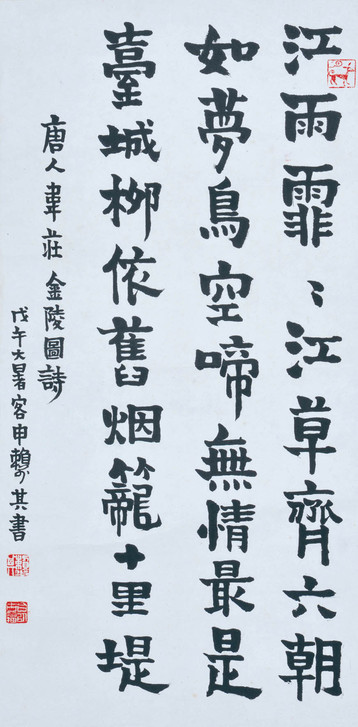 江雨霏〻江草齊六朝
如夢鳥空啼無情最是
臺城柳依舊烟籠十里堤
唐人韋莊金陵圖詩
戊午大暑客申賴少其書